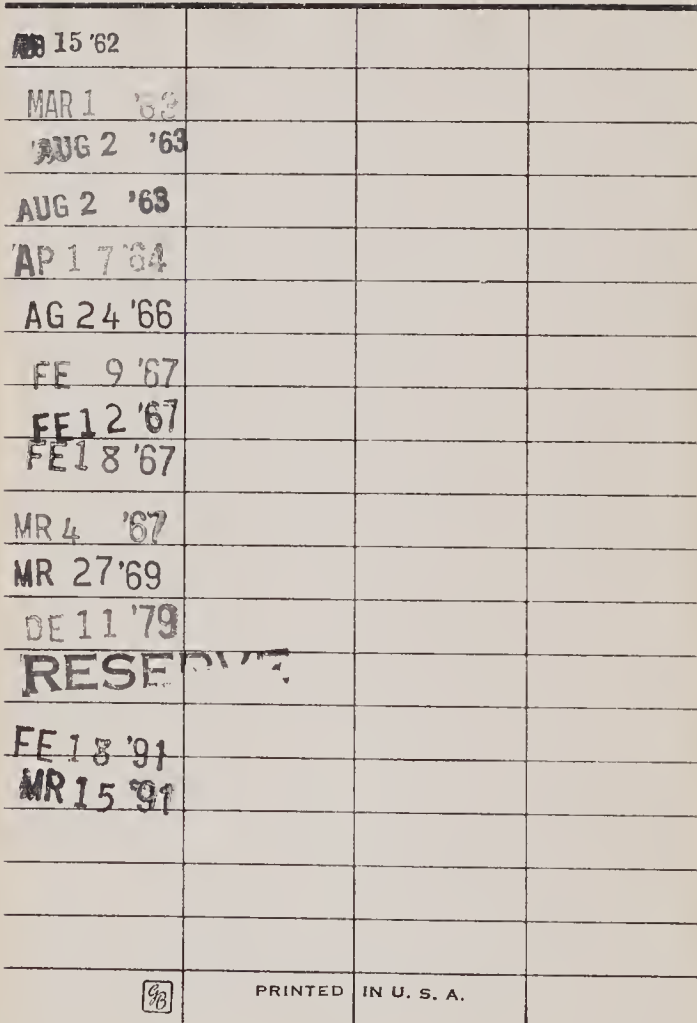 15 '62
MAR 1 '63
AUG 2 '63
AUG 2 '63
AP 17 '64
AG 24 '66
FE 9 '67
FE 12 '67
FE 18 '67
MR 4 '67
MR 27 '69
DE 11 '79
RESERVE
FE 18 '91
MR 15 '91
GB PRINTED IN U. S. A.